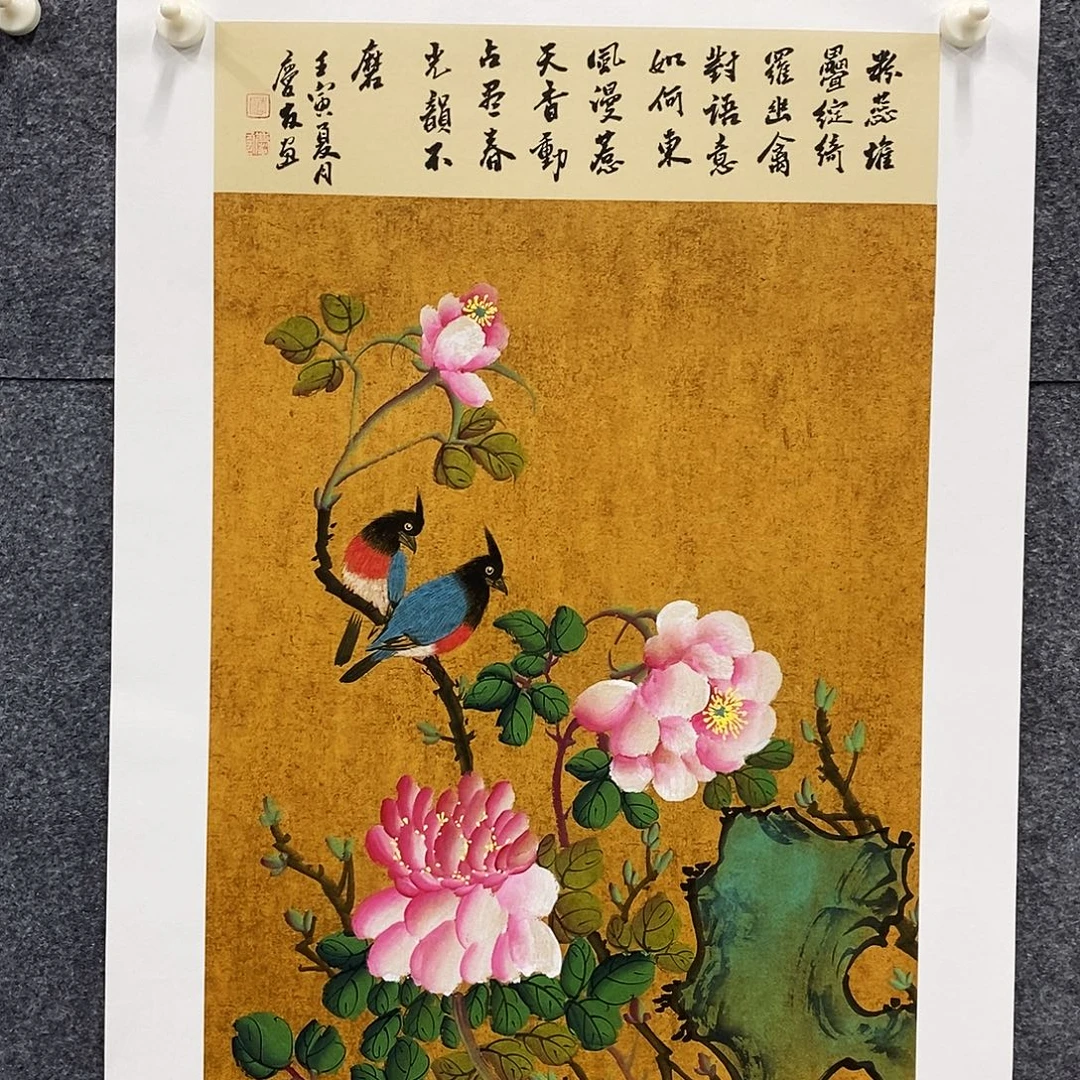 粉蕊堆
疊綻綺
羅幽禽
對語意
如何東
風漫惹
天香動
占盡春
光韻不
磨
壬寅夏月
慶友畫